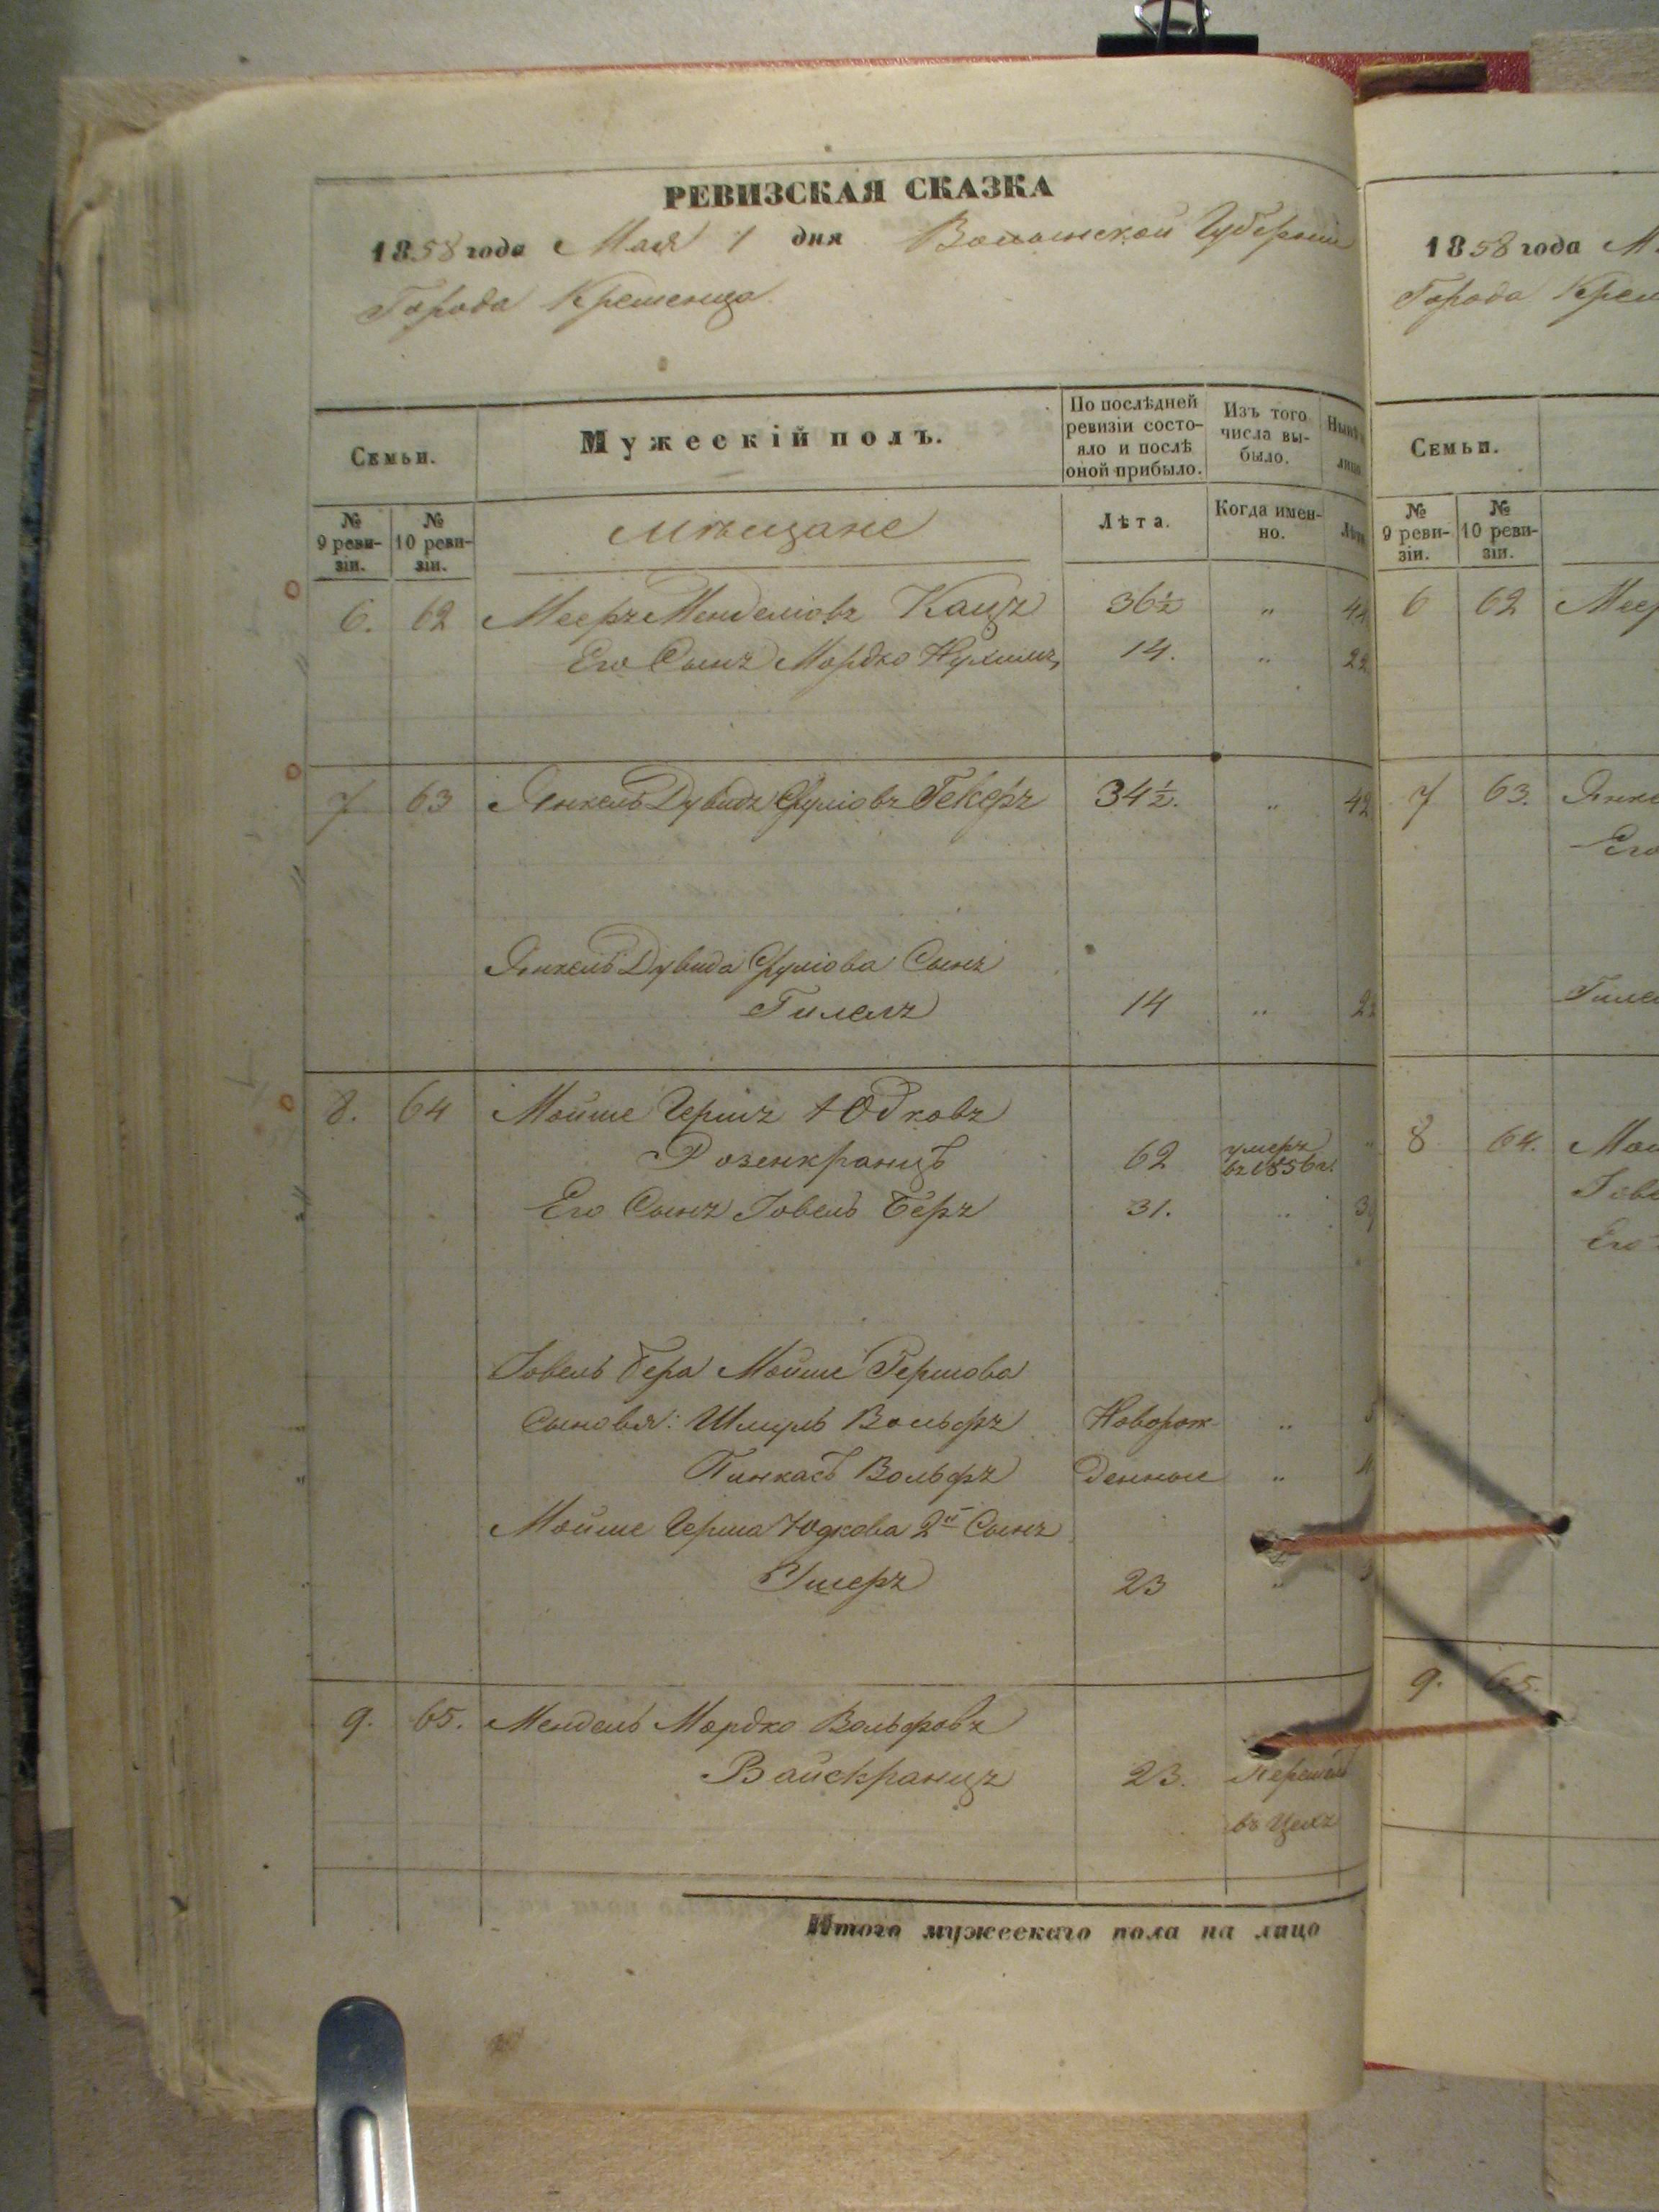 РЕВИЗСКАЯ СКАЗКА
1858 года Мая 1 дня Волынской Губерніи
Города Кременца
Семьи.
Мужескій полъ.
По послѣдней ревизіи состо-
яло и послѣ
оной прибыло.
Изъ того
числа вы-
было.
№
9 реви-
зіи.
№
10 реви-
зіи.
Мѣщане
Лѣта.
Когда имен-
но.
6. 62 Мееръ Менделіовъ Кацъ 36½ "
Его Сынъ Мордко 14. " 22
7 63 Янкель Дувидъ Сруліовъ Гекеръ 34½. " 42
Янкель Дувида Сруліова Сынъ
Гилелъ 14 " 22
8. 64 Мойше Гершъ Юдковъ
Розенкранцъ 62 умеръ
въ 1856 г.
Его Сынъ Іовель Беръ 31. " 39
Іовель Бера Мойше Гершова
Сыновья: Шмуль Вольфъ Новорож- "
Пинкасъ Вольфъ денные "
Мойше Герша Юдкова 2й Сынъ
Ушеръ 23 "
9. 65. Мендель Мордко Вольфовъ
Вайскранцъ 23.
въ Цехъ
Итого мужескаго пола на лицо
1858 года
Города Крем
Семьи.
№
9 реви-
зіи.
№
10 реви-
зіи.
6 62 Меер
7 63. Янке
Его
Гиле
8 64. Мой
Іове
Его
9. 65.